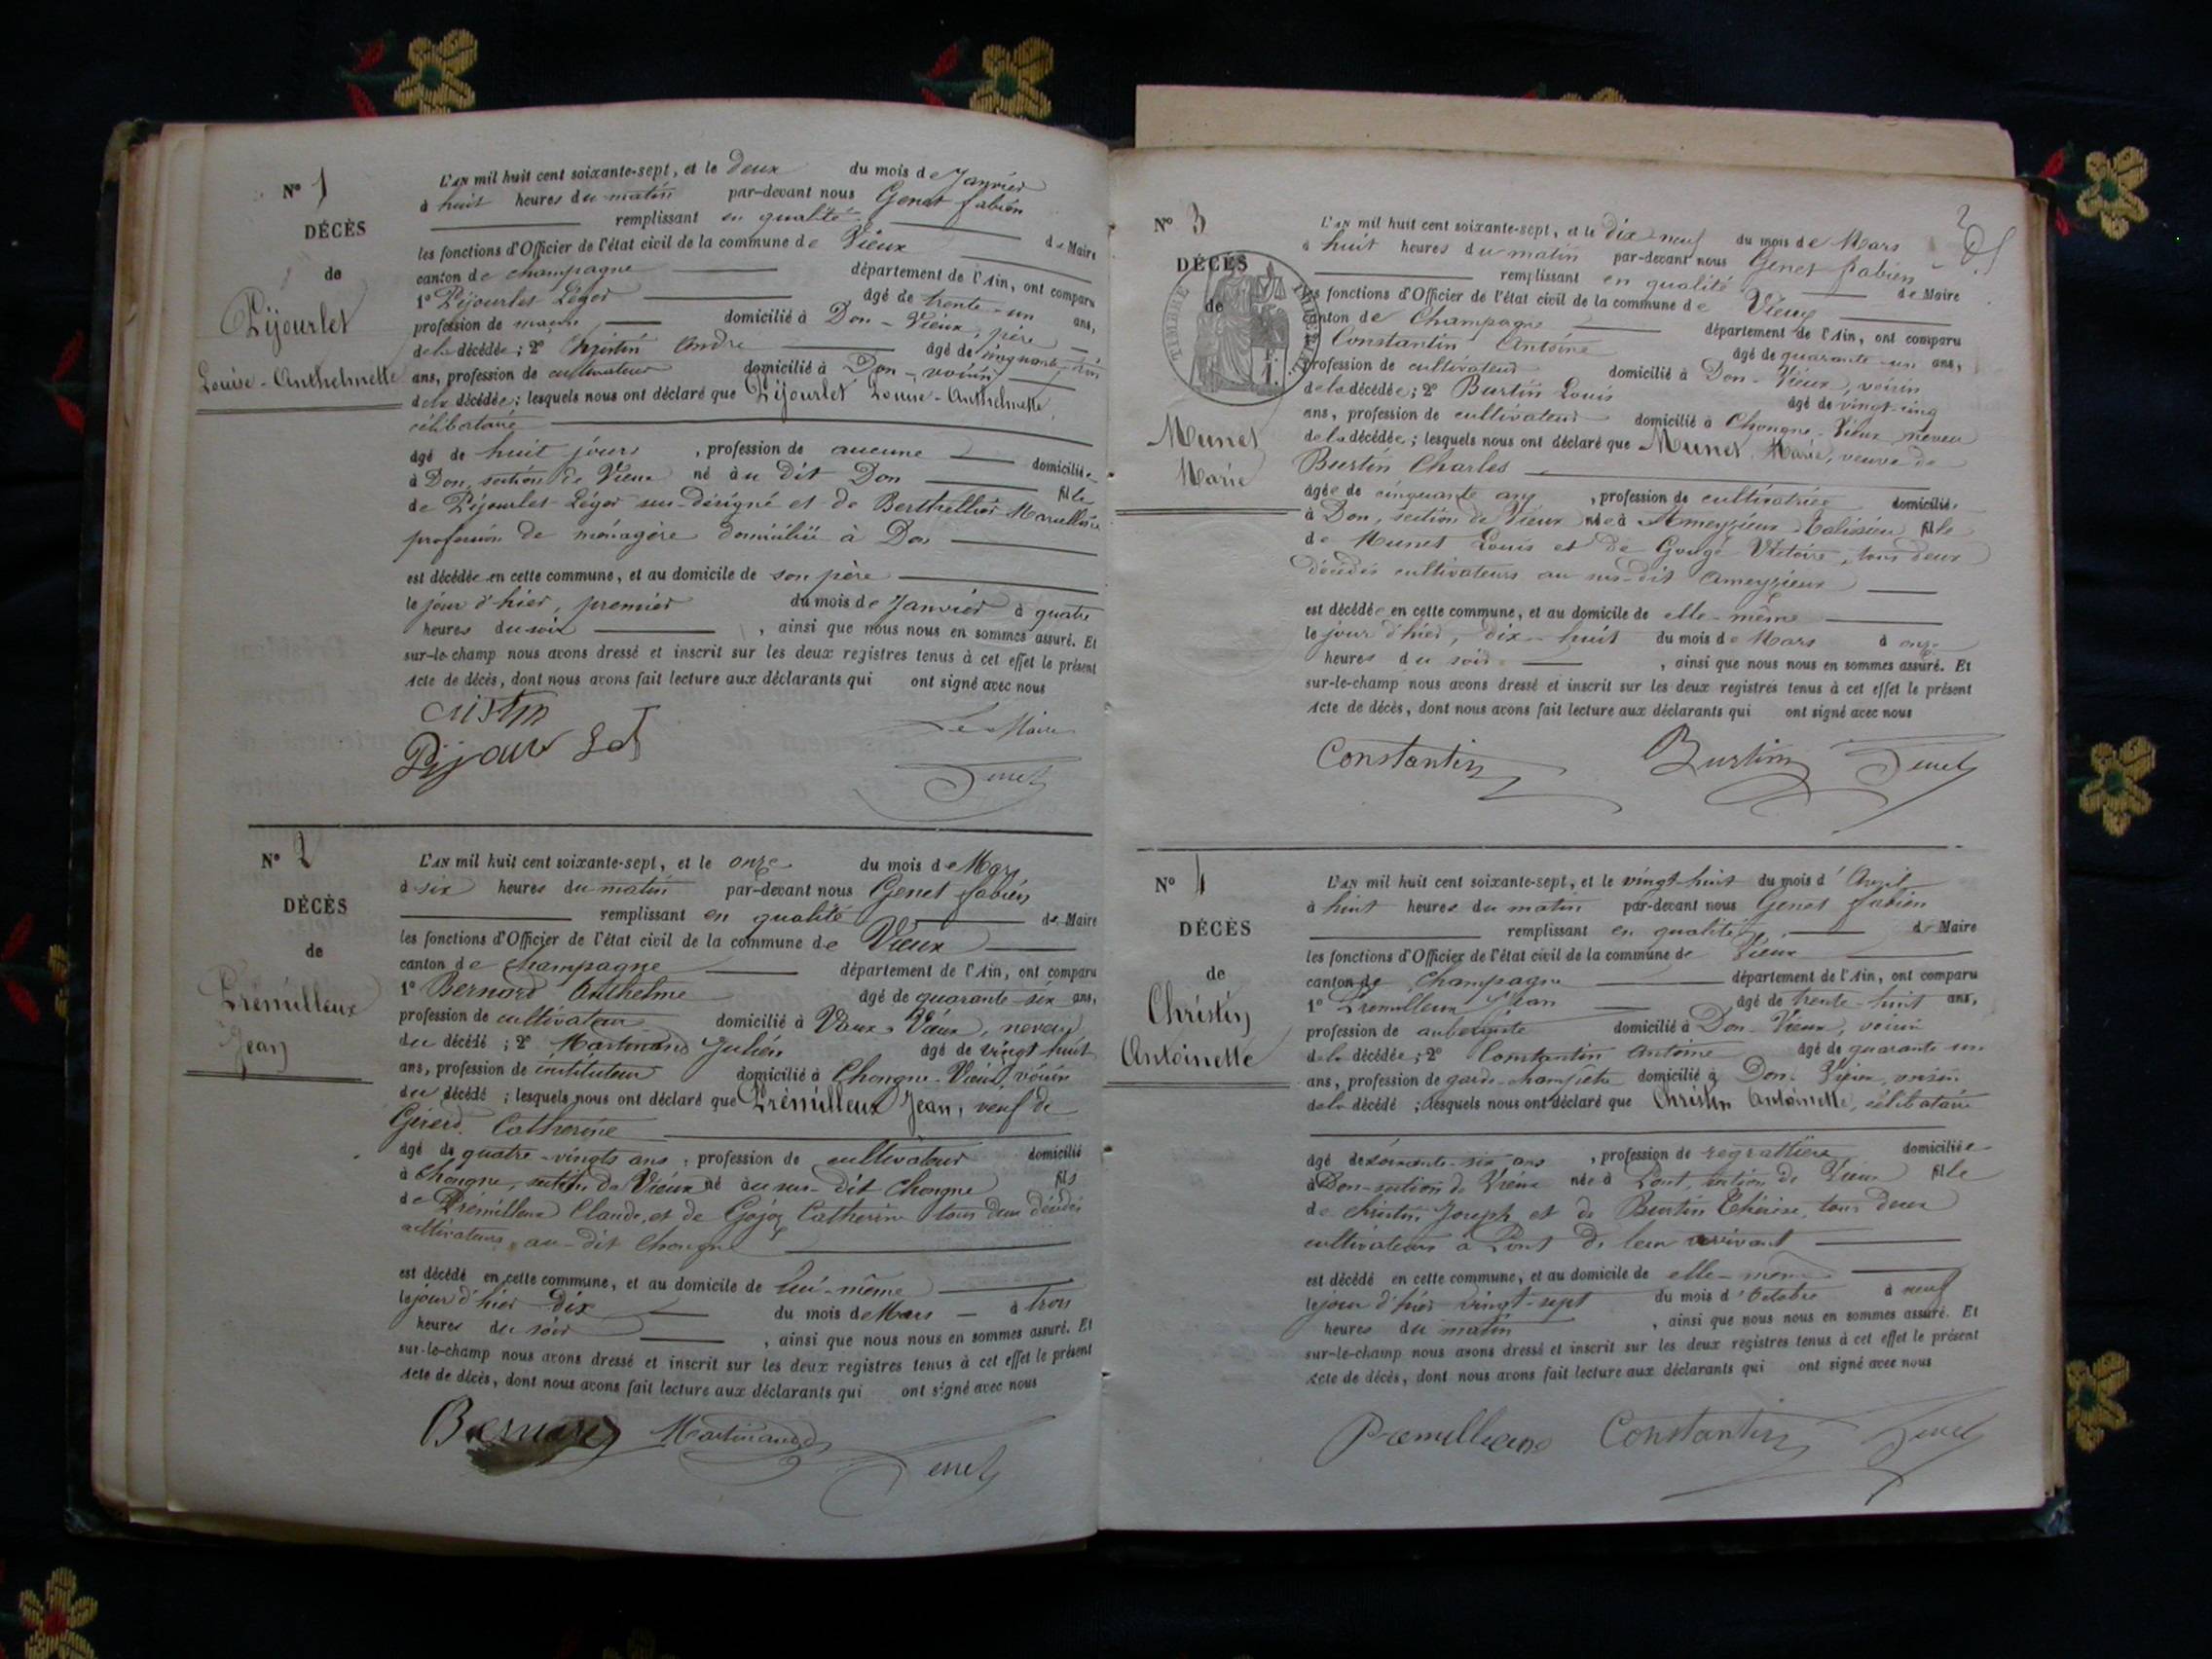 Nº 1
DÉCÈS
de
Pijourlet
Louise-Anthelmette
L'AN mil huit cent soixante-sept, et le deux du mois de Janvier
à huit heures du matin par-devant nous Genet fabien
remplissant en qualité de Maire
les fonctions d'Officier de l'état civil de la commune de Vieux
canton de champagne département de l'Ain, ont comparu
1º Pijourlet Léger âgé de trente-un ans,
profession de maçon domicilié à Don-Vieux, père
de la décédée; 2º Christin André âgé de cinquante-
ans, profession de cultivateur domicilié à Don, voisin
de la décédée; lesquels nous ont déclaré que Pijourlet Louise-Anthelmette,
célibataire
âgé de huit jours, profession de aucune domiciliée
à Don, section de Vieux né au dit Don fille
de Pijourlet Léger sus-désigné et de Berthellier
profession de ménagère domiciliée à Don
est décédée en cette commune, et au domicile de son père
le jour d'hier, premier du mois de Janvier à quatre
heures du soir, ainsi que nous nous en sommes assuré. Et
sur-le-champ nous avons dressé et inscrit sur les deux registres tenus à cet effet le présent
acte de décès, dont nous avons fait lecture aux déclarants qui ont signé avec nous
cristin
Le Maire
Pijourlet
Genet
Nº 2
DÉCÈS
de
Prémilleux
Jean
L'AN mil huit cent soixante-sept, et le onze du mois de Mars
à six heures du matin par-devant nous Genet fabien
remplissant en qualité de Maire
les fonctions d'Officier de l'état civil de la commune de Vieux
canton de champagne département de l'Ain, ont comparu
1º Bernard Anthelme âgé de quarante-six ans,
profession de cultivateur domicilié à Vaux-Vieux, neveu
du décédé; 2º Martinand Julien âgé de vingt huit
ans, profession de instituteur domicilié à Chongne-Vieux, voisin
du décédé; lesquels nous ont déclaré que Prémilleux Jean, veuf de
Girerd Catherine
âgé de quatre-vingts ans, profession de cultivateur domicilié
à Chongne, section de Vieux né au sus-dit Chongne fils
de Prémilleux Claude, et de Gojoz Catherine tous deux décédés
cultivateurs au-dit Chongne
est décédé en cette commune, et au domicile de lui-même
le jour d'hier dix du mois de Mars à trois
heures du soir, ainsi que nous nous en sommes assuré. Et
sur-le-champ nous avons dressé et inscrit sur les deux registres tenus à cet effet le présent
acte de décès, dont nous avons fait lecture aux déclarants qui ont signé avec nous
Bernard Martinand Genet
Nº 3
DÉCÈS
de
TIMBRE IMPÉRIAL
Munet
Marie
L'AN mil huit cent soixante-sept, et le dix neuf du mois de Mars
à huit heures du matin par-devant nous Genet fabien
remplissant en qualité de Maire
les fonctions d'Officier de l'état civil de la commune de Vieux
canton de Champagne département de l'Ain, ont comparu
Constantin Antoine âgé de quarante-un ans,
profession de cultivateur domicilié à Don-Vieux, voisin
de la décédée; 2º Burtin Louis âgé de vingt-cinq
ans, profession de cultivateur domicilié à Chongne-Vieux neveu
de la décédée; lesquels nous ont déclaré que Munet Marie, veuve de
Burtin Charles
âgée de cinquante ans, profession de cultivatrice domiciliée
à Don, section de Vieux née à Ameyzieux Talissieu fille
de Munet Louis et de Gouge Victoire, tous deux
décédés cultivateurs au sus-dit Ameyzieux
est décédée en cette commune, et au domicile de elle-même
le jour d'hier, dix-huit du mois de Mars à onze
heures du soir, ainsi que nous nous en sommes assuré. Et
sur-le-champ nous avons dressé et inscrit sur les deux registres tenus à cet effet le présent
acte de décès, dont nous avons fait lecture aux déclarants qui ont signé avec nous
Constantin Burtin Genet
Nº 4
DÉCÈS
de
Christin
Antoinette
L'AN mil huit cent soixante-sept, et le vingt-huit du mois d'Avril
à huit heures du matin par-devant nous Genet fabien
remplissant en qualité de Maire
les fonctions d'Officier de l'état civil de la commune de Vieux
canton de Champagne département de l'Ain, ont comparu
1º Prémilleux Jean âgé de trente-huit ans,
profession de aubergiste domicilié à Don-Vieux, voisin
de la décédée; 2º Constantin Antoine âgé de quarante un
ans, profession de garde-champêtre domicilié à Don-Vieux, voisin
de la décédé; lesquels nous ont déclaré que Christin Antoinette, célibataire
âgé de soixante-six ans, profession de regrattière domiciliée
à Don-section de Vieux née à Pont, section de Vieux fille
de christin Joseph et de Burtin Thérèse, tous deux
cultivateurs à Pont de leur vivant
est décédé en cette commune, et au domicile de elle-même
le jour d'hier vingt-sept du mois d'Octobre à neuf
heures du matin, ainsi que nous nous en sommes assuré. Et
sur-le-champ nous avons dressé et inscrit sur les deux registres tenus à cet effet le présent
acte de décès, dont nous avons fait lecture aux déclarants qui ont signé avec nous
Premilleux Constantin Genet